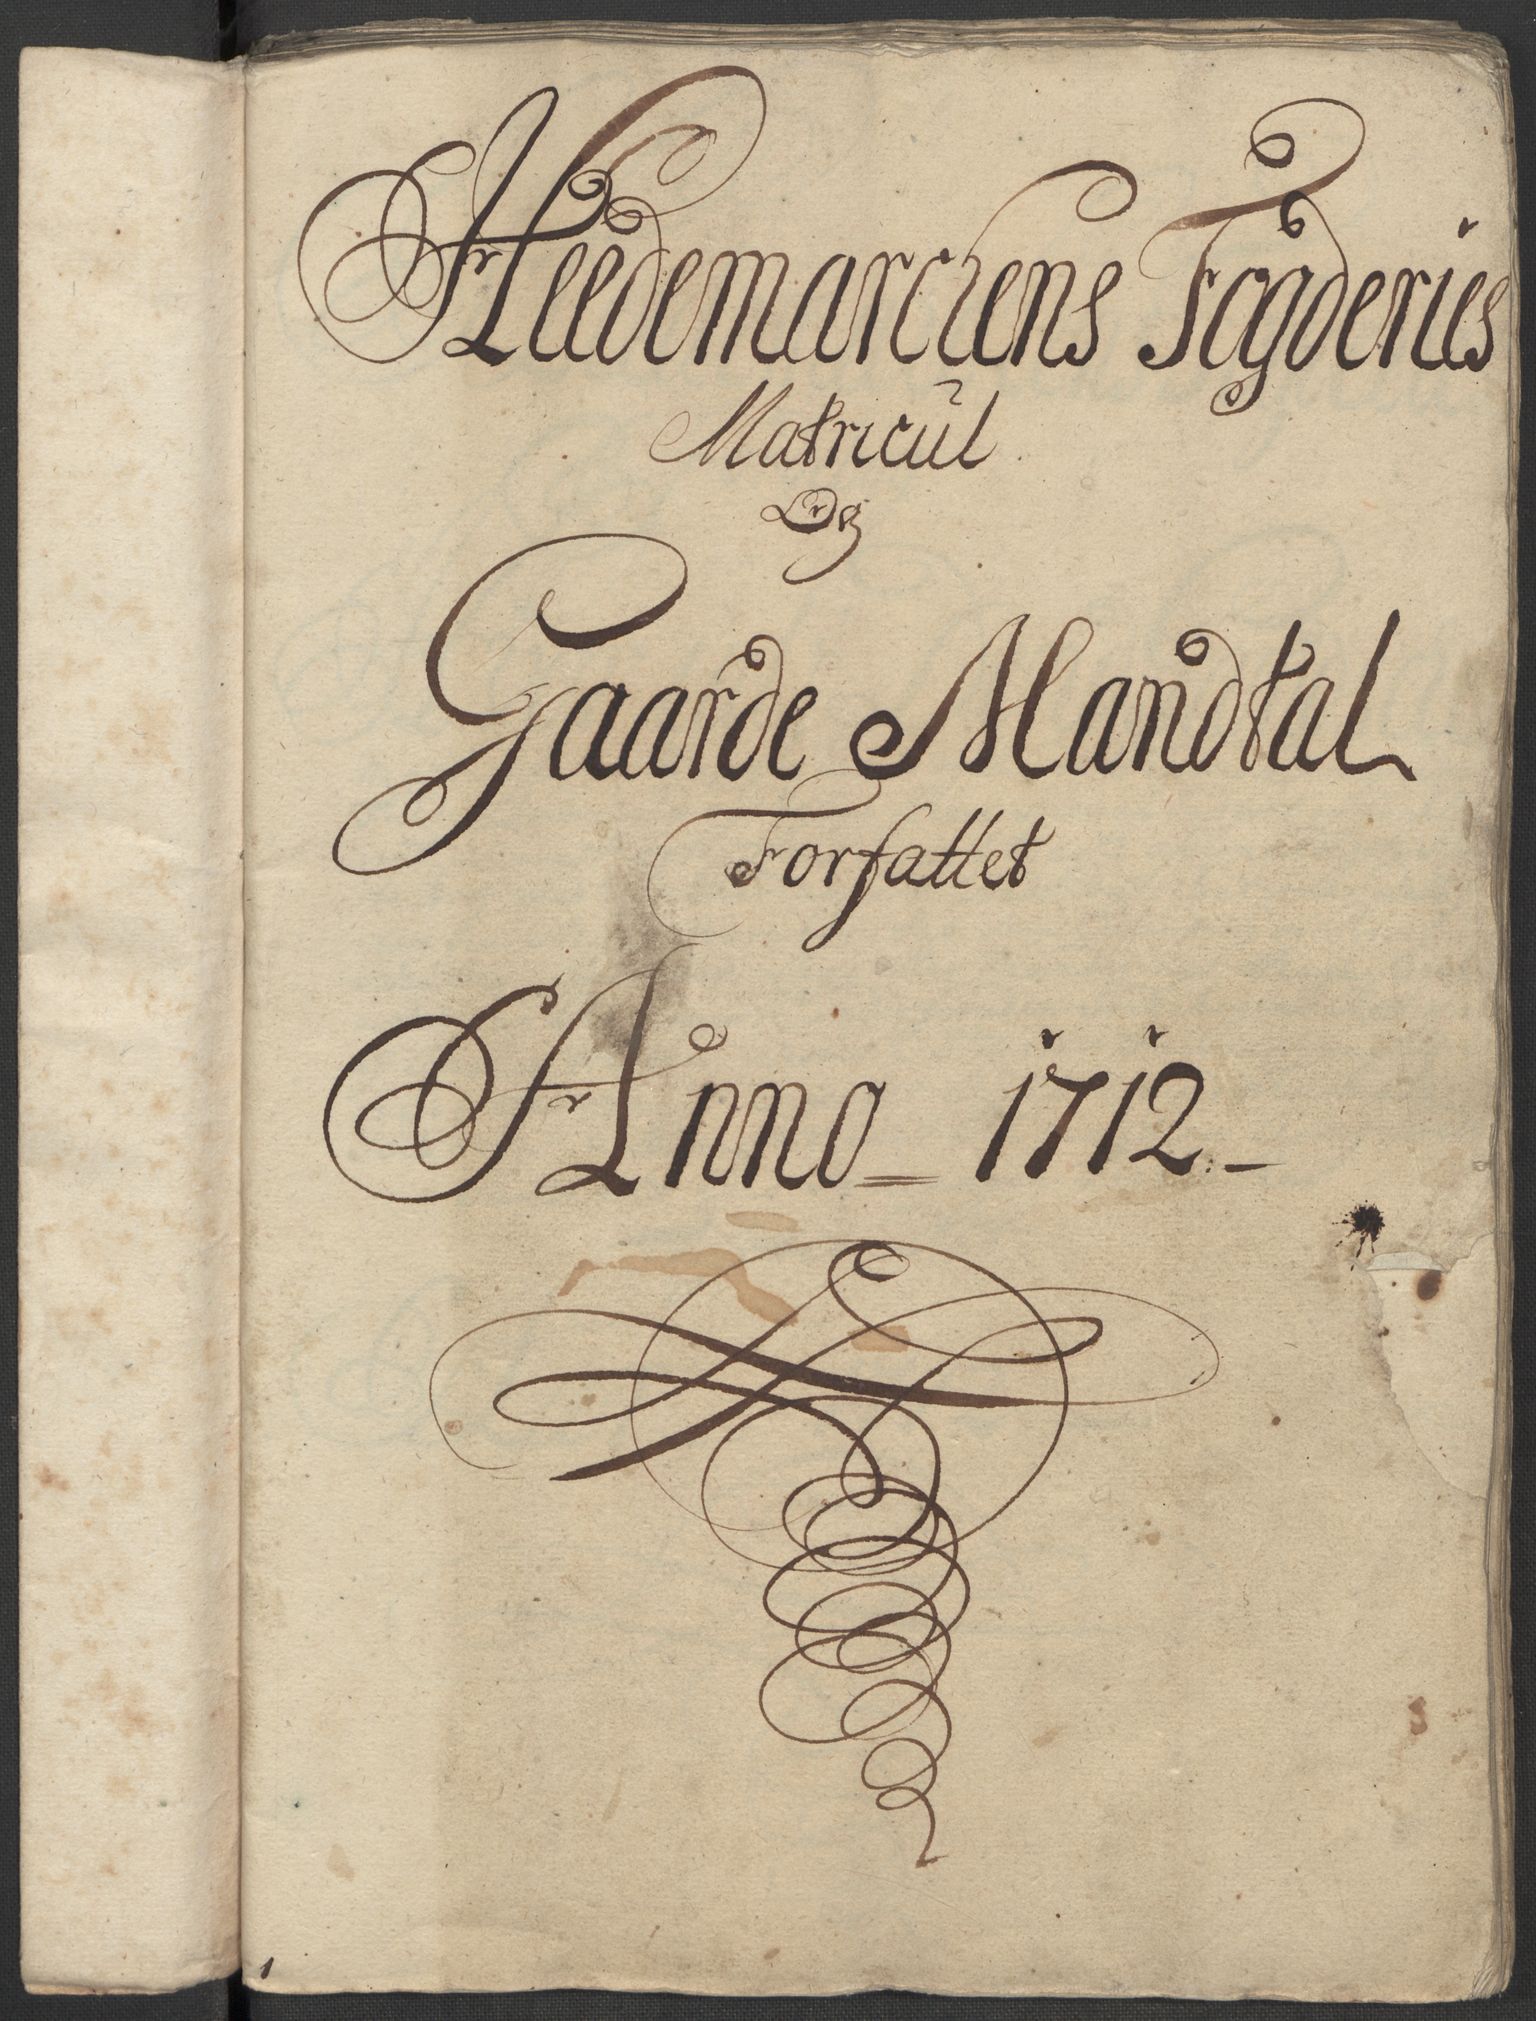 Heedemarckens Fogderies
Matricul
Og
Gaarde Mandtal
Forfattet
Anno 1712
1